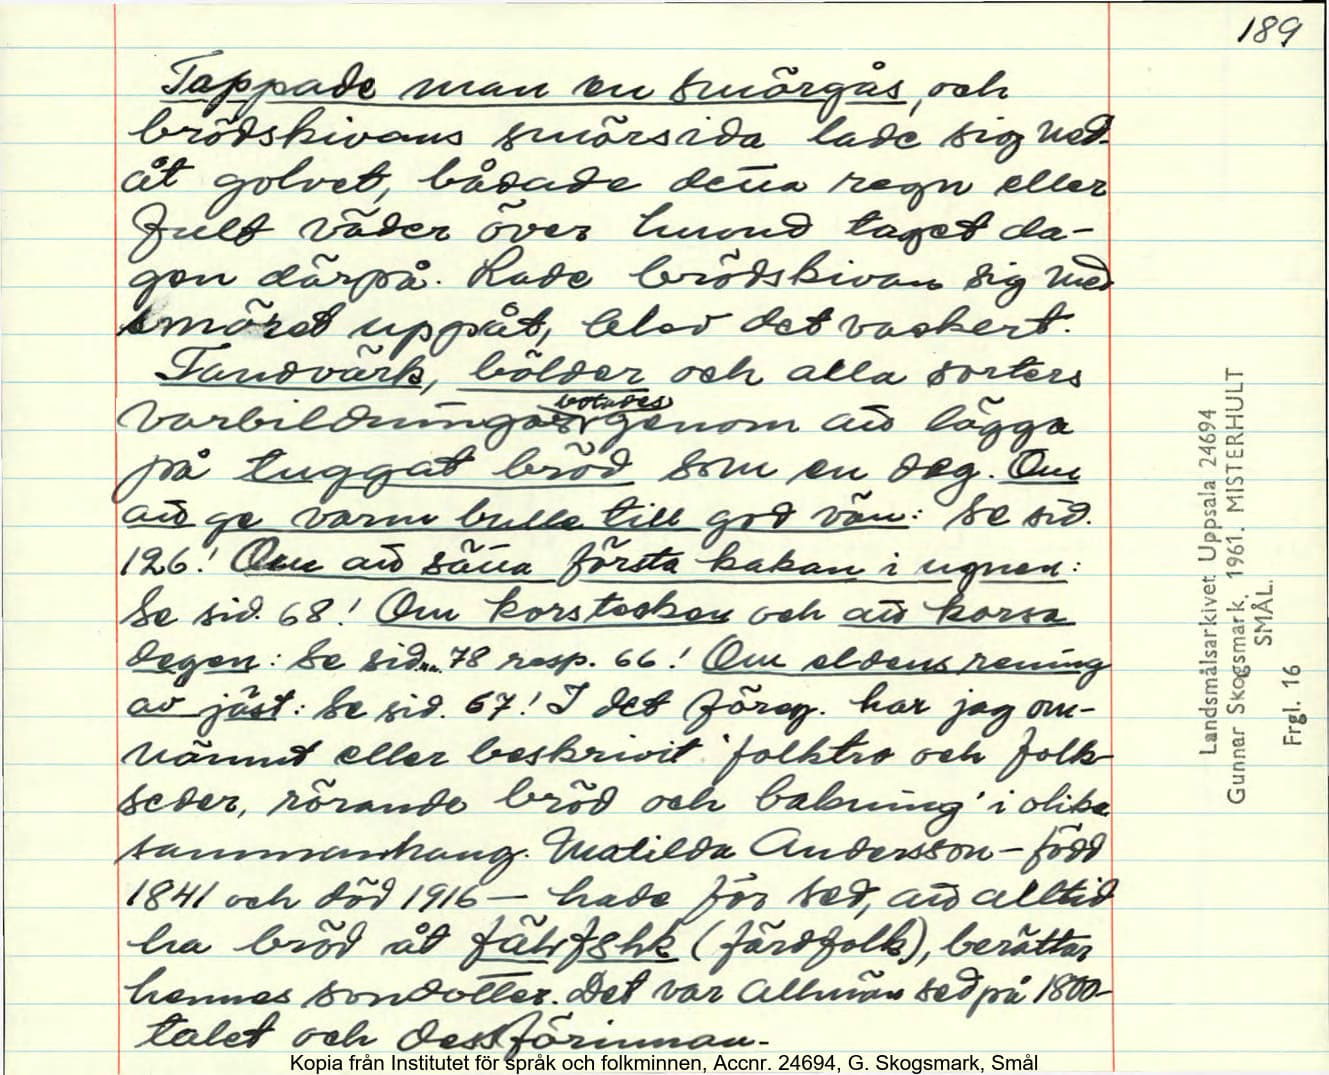 189
Tappade man en smörgås, och
brödskivans smörsida lade sig ned-
åt golvet, bådade detta regn eller
fult väder över huvud taget da-
gen därpå. Lade brödskivan sig med
smöret uppåt, blev det vackert.
Tandvärk, bölder och alla sorters
varbildningar botades genom att lägga
på tuggat bröd som en deg. Om
att ge varm bulle till god vän: Se sid.
126! Om att sätta första kakan i ugnen:
Se sid. 68! Om korstecken och att korsa
degen: Se sid. 78 resp. 66! Om eldens rening
av jäst: Se sid. 67! I det föreg. har jag om-
nämnt eller beskrivit 'folktro och folk-
seder, rörande bröd och bakning' i olika
sammanhang. Matilda Andersson – född
1841 och död 1916 – hade för sed, att alltid
ha bröd åt (färdfolk), berättar
hennes sondotter. Det var allmän sed på 1800-
talet och dessförinnan.
Landsmålsarkivet Uppsala 24694
Gunnar Skogsmark. 1961. MISTERHULT
SMÅL.
Frgl. 16
Kopia från Institutet för språk och folkminnen, Accnr. 24694, G. Skogsmark, Smål